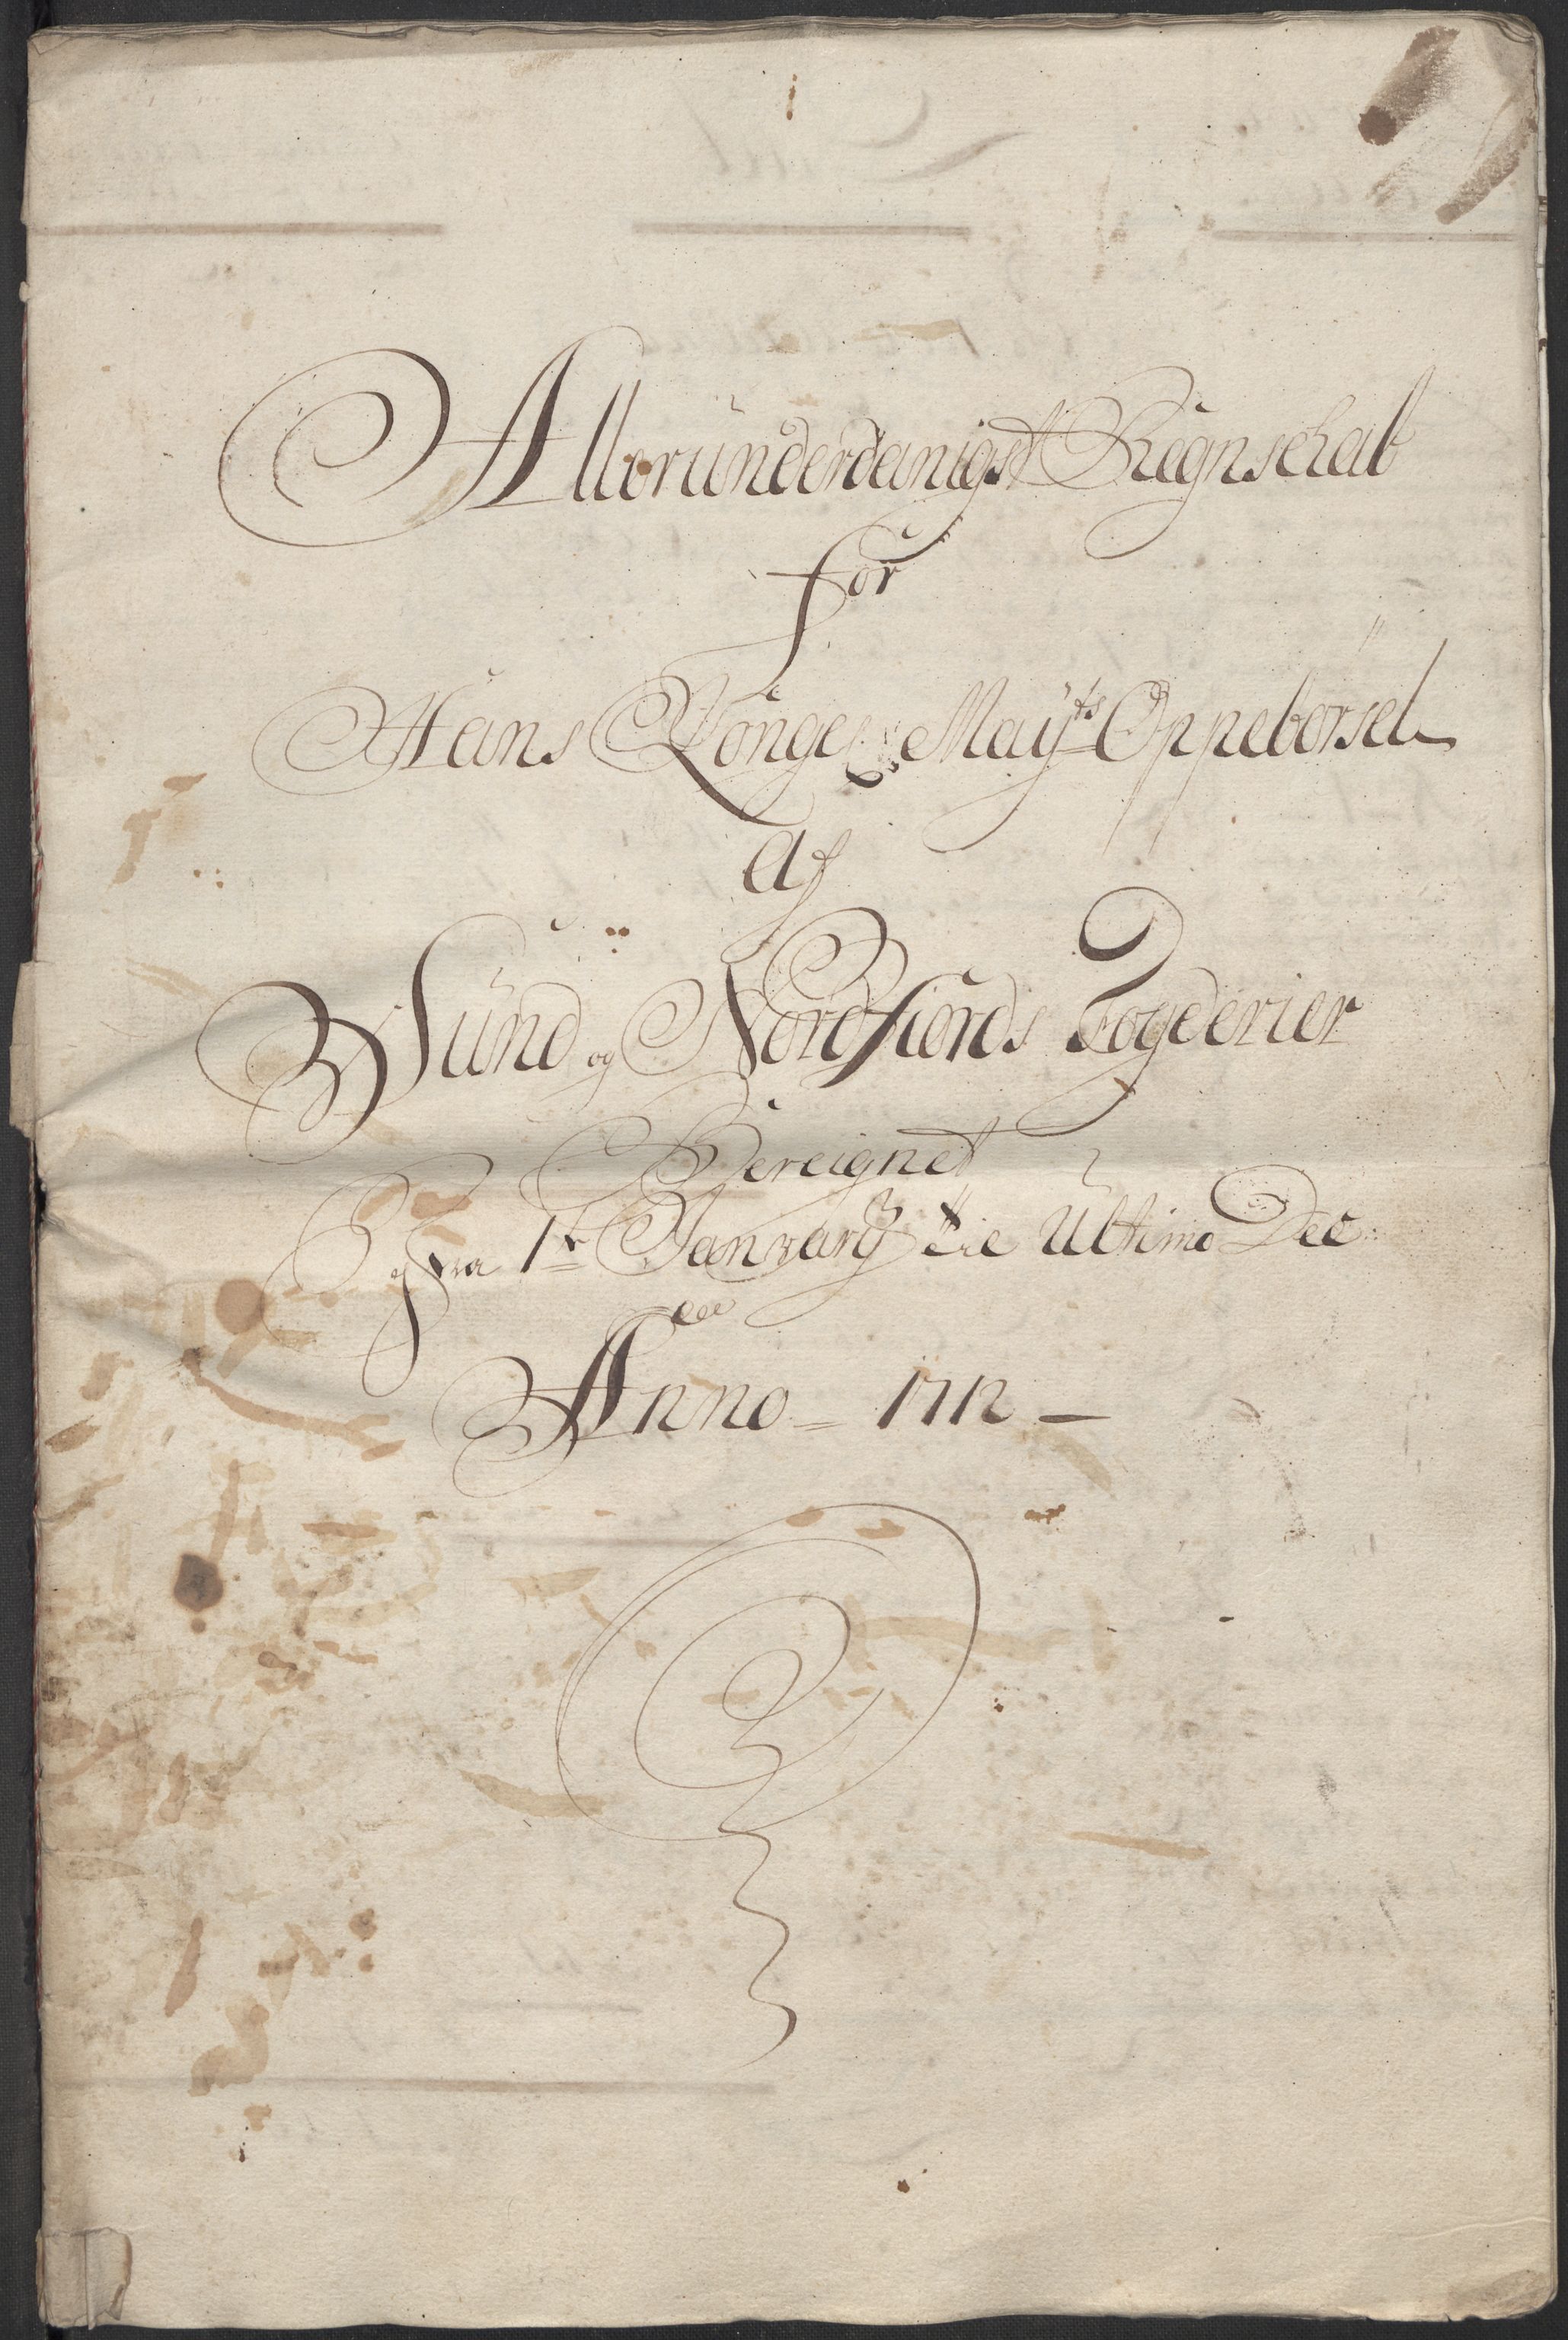 Allerunderdanigst Regnschab
for
Hans Konge: Mayts Oppebørsel
Af
Sund og Nordfiords Fogderier
Bereignet
fra 1te January til Ultimo Dec
Anno = 1712 —